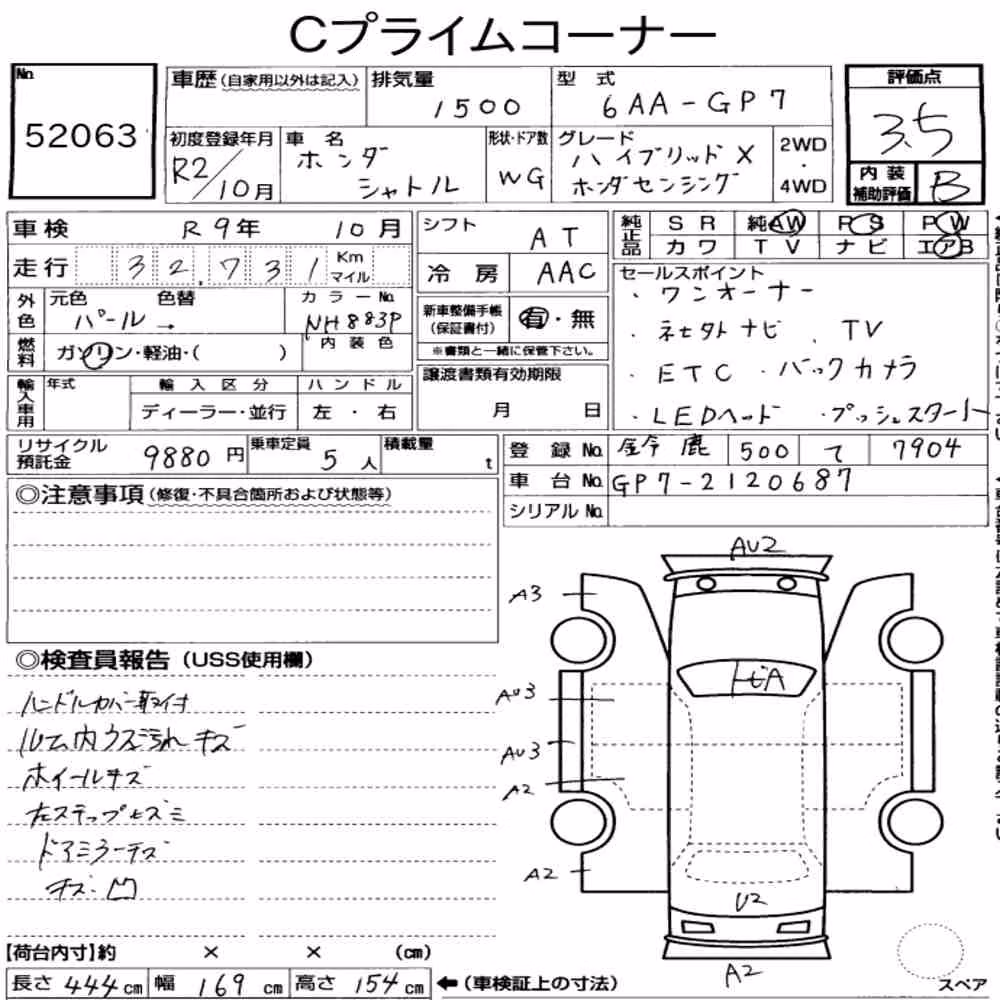 Cプライムコーナー
No.
52063
車歴(自家用以外は記入)
排気量
1500
型式
6AA-GP7
評価点
3.5
初度登録年月
R2/10月
車名
ホンダ
シャトル
形状・ドア数
WG
グレード
ハイブリッドX
ホンダセンシング
2WD
・
4WD
内装
補助評価
B
車検 R 9年 10月
シフト
AT
純正品
SR 純AW PS PW
カワ TV ナビ エアB
走行 32,731 Km マイル
冷房
AAC
セールスポイント
・ワンオーナー
・ TV
・ETC ・バックカメラ
・LEDヘッド ・プッシュスタート
外色
元色 色替
パール →
カラーNo.
NH883P
新車整備手帳
(保証書付)
有・無
※書類と一緒に保管下さい。
燃料
ガソリン・軽油・( )
内装色
輸入車用
年式
輸入区分
ハンドル
ディーラー・並行
左・右
譲渡書類有効期限
月 日
リサイクル
預託金
9880円
乗車定員
5人
積載量
t
登録No. 鈴鹿 500 て 7904
車台No. GP7-2120687
シリアルNo.
◎注意事項(修復・不具合箇所および状態等)
◎検査員報告(USS使用欄)
ハンドルカバー取付
ルーム内ウス汚れ キズ
ホイールキズ
左ステップヒズミ
ドアミラーキズ
キズ・凹
AU2
A3
トビA
AU3
AU3
A2
A2
U2
A2
【荷台内寸】約 × × (cm)
長さ 444cm 幅 169cm 高さ 154cm
←(車検証上の寸法)
スペア